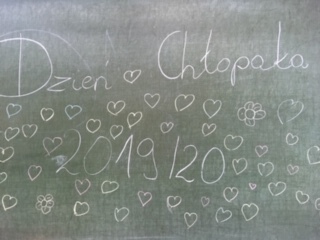 Dzień Chłopaka
2019/20